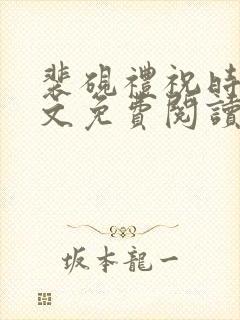 裴硯禮祝時
文免費閱讀
坂本龍一